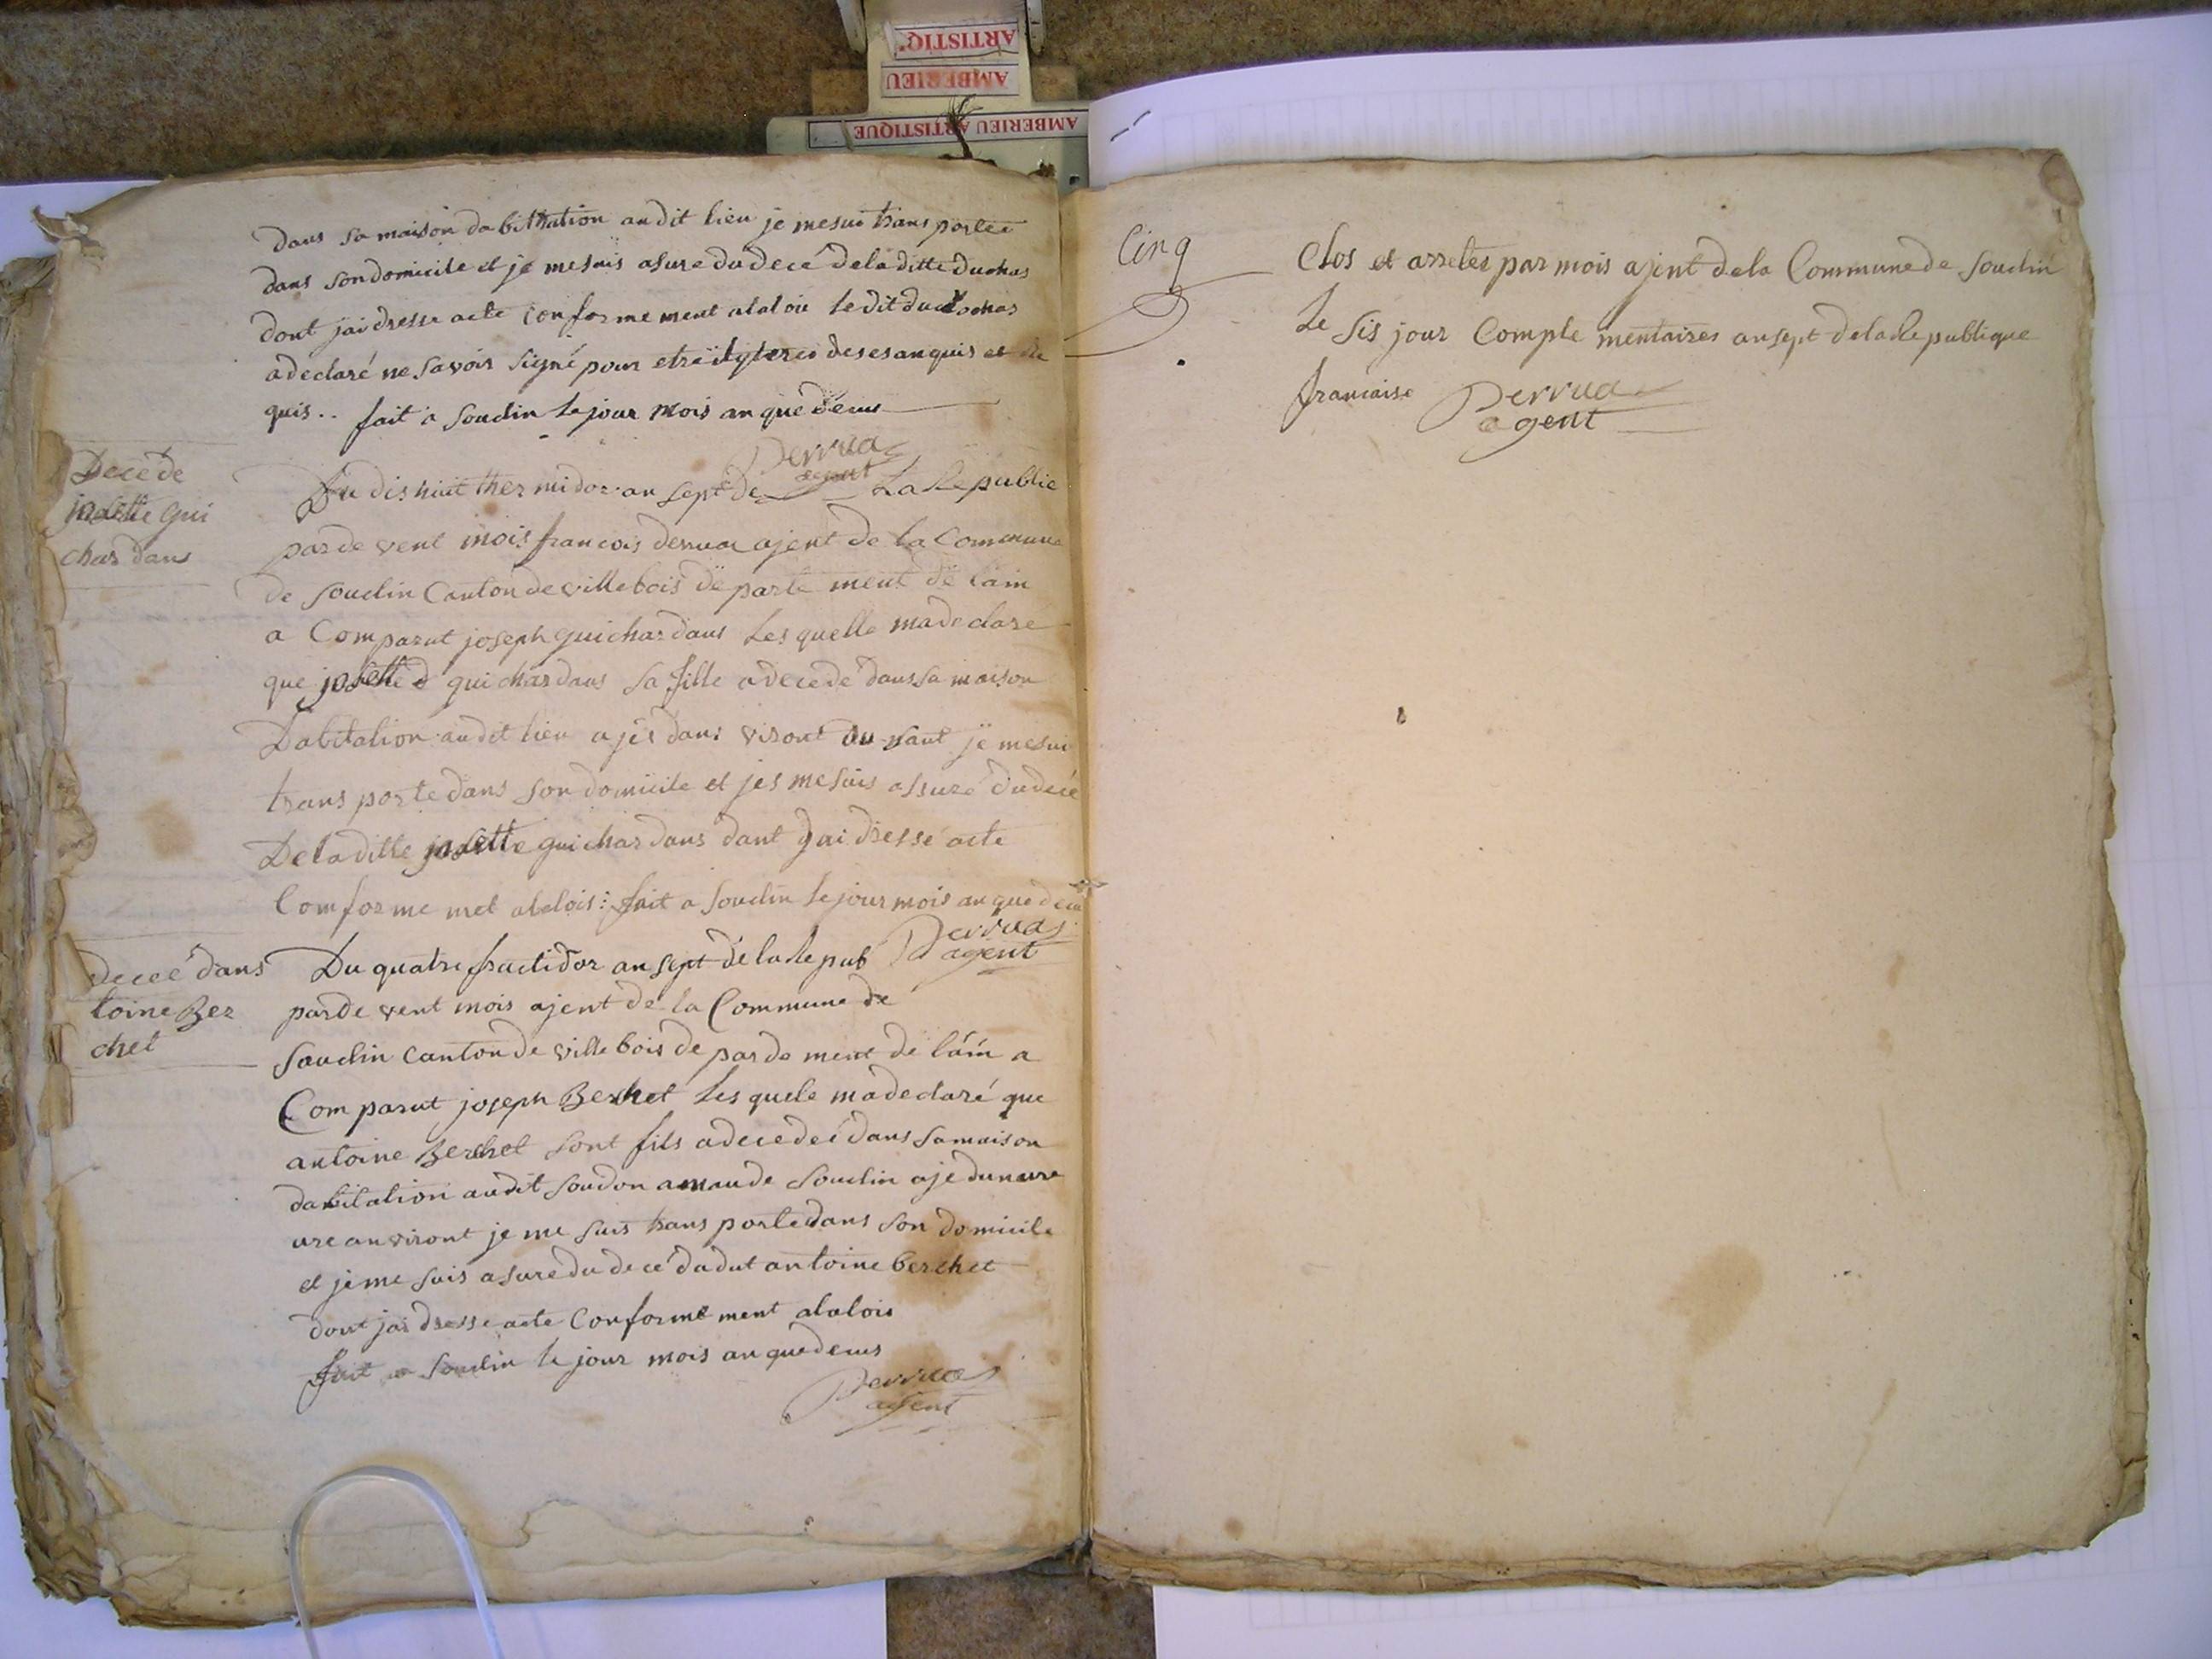 ARTISTIQ'
AMBERIEU
AMBERIEU ARTISTIQUE
dans sa maison dabithation au dit lieu je me sui trans portee
dans son domicile et je me suis asure du decé de la ditte duchas
dont jai dresse acte conforme ment a la loir le dit duclochas
a declaré ne savoir signé pour etre de ses anquis et de
quis .. fait a soudin le jour mois an que deus
Derrua
agent
Decé de
josette Gui
chardans
Du dis huit thermidor an sept de La Republic
par de vent mois francois derrua ajent de la Commune
de soudin Canton de villebois de parte ment de lain
a Comparut joseph guichardans Les quelle ma declare
que josette guichardans sa fille a decede dans sa maison
Dabitation au dit lieu a jes dans viront je me sui
trans porte dans son domicile et jes me suis assuré du decé
De la ditte josette guichardans dant jai dressé acte
Comforme met a la lois : fait a soudin le jour mois an que deu
Derrua
agent
decé dans
toine Ber
chet
Du quatre fructidor an sept de la Repub
par de vent mois ajent de la Commune de
Soudin canton de ville bois de par de ment de láin a
Comparut joseph Berchet Les quele ma declaré que
antoine Berchet sont fils a decedeé dans sa maison
dabitation au dit soudon amau de soudin aje dun
ure anviront je me suis trans porte dans son domicile
et je me suis asure du decé du dut antoine berchet
dont jai dresse acte Conforme ment a la lois
fait a soudin le jour mois an que deus
Derrua
agent
Cinq
Clos et arretés par mois ajent de la Commune de soudin
Le sis jour Complementaires an sept de la Republique
francaise Derrua
agent